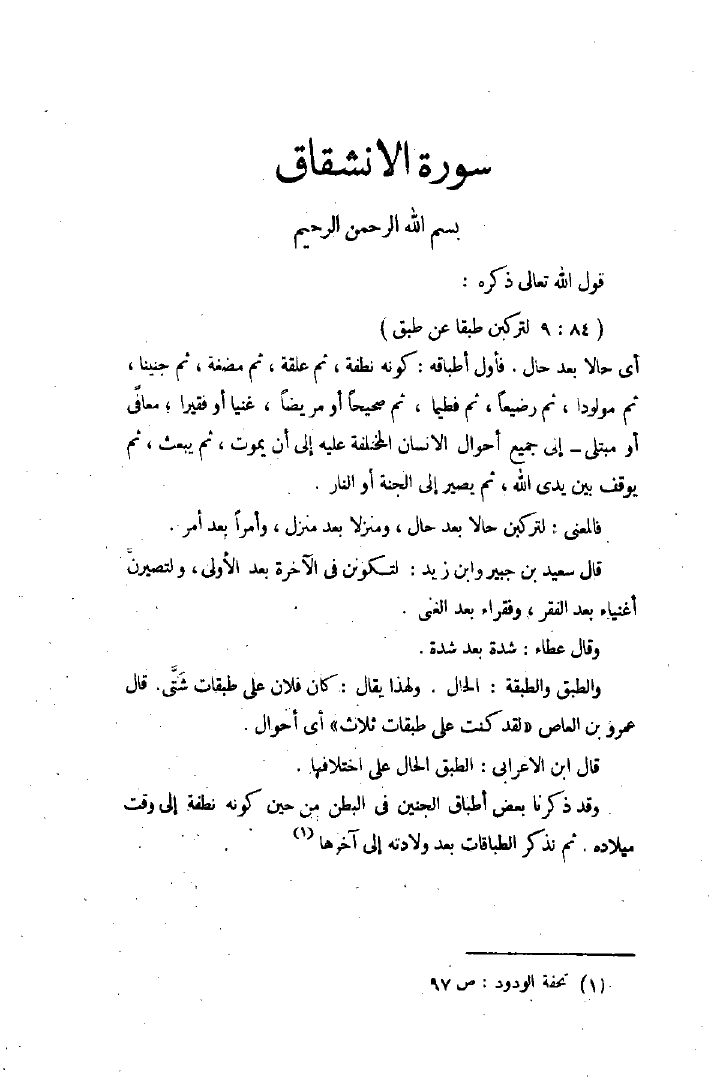 سورة الانشقاق
بسم الله الرحمن الرحيم
قول الله تعالى ذكره :
( ٨٤ : ٩ لتركبن طبقا عن طبق )
أى حالا بعد حال . فأول أطباقه : كونه نطفة ، ثم علقة ، ثم مضغة ، ثم جنينا ،
ثم مولودا ، ثم رضيعاً ، ثم فطيما ، ثم صحيحاً أو مريضاً ، غنيا أو فقيرا ، معافًى
أو مبتلى ـ إلى جميع أحوال الانسان المختلفة عليه إلى أن يموت ، ثم يبعث ، ثم
يوقف بين يدى الله ، ثم يصير إلى الجنة أو النار .
فالمعنى : لتركبن حالا بعد حال ، ومنزلا بعد منزل ، وأمراً بعد أمر .
قال سعيد بن جبير وابن زيد : لتكونن فى الآخرة بعد الأولى ، ولتصيرنَّ
أغنياء بعد الفقر ، وفقراء بعد الغنى .
وقال عطاء : شدة بعد شدة .
والطبق والطبقة : الحال . ولهذا يقال : كان فلان على طبقات شَتَّى . قال
عمرو بن العاص «لقد كنت على طبقات ثلاث» أى أحوال .
قال ابن الاعرابى : الطبق الحال على اختلافها .
وقد ذكرنا بعض أطباق الجنين فى البطن من حين كونه نطفة إلى وقت
ميلاده . ثم نذكر الطباقات بعد ولادته إلى آخرها (١)
(١) تحفة الودود : ص ٩٧